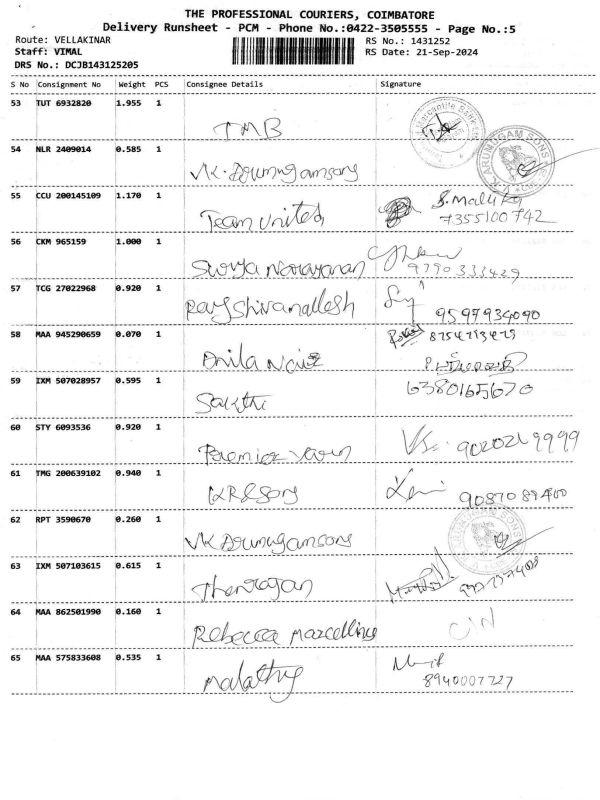 THE PROFESSIONAL COURIERS, COIMBATORE
Delivery Runsheet - PCM - Phone No.:0422-3505555 - Page No.:5
Route: VELLAKINAR RS No.: 1431252
Staff: VIMAL RS Date: 21-Sep-2024
DRS No.: DCJB143125205
S No Consignment No Weight PCS Consignee Details Signature
53 TUT 6932820 1.955 1
TMB
54 NLR 2409014 0.585 1
VK. Arumugamsons
55 CCU 200145109 1.170 1
Team united
7355100742
56 CKM 965159 1.000 1
Surya Narayanan
9790333429
57 TCG 27022968 0.920 1
9597934090
58 MAA 945290659 0.070 1
Anila Nair
59 IXM 507028957 0.595 1
6380165670
Sakthi
60 STY 6093536 0.920 1
Premier yarn
9020219999
61 TMG 200639102 0.940 1
KR&Sons
62 RPT 3590670 0.260 1
VK Arumugamsons
63 IXM 507103615 0.615 1
Thenrajan
64 MAA 862501990 0.160 1
Rebecca Marcelline
65 MAA 575833608 0.535 1
Malathy
8940007727